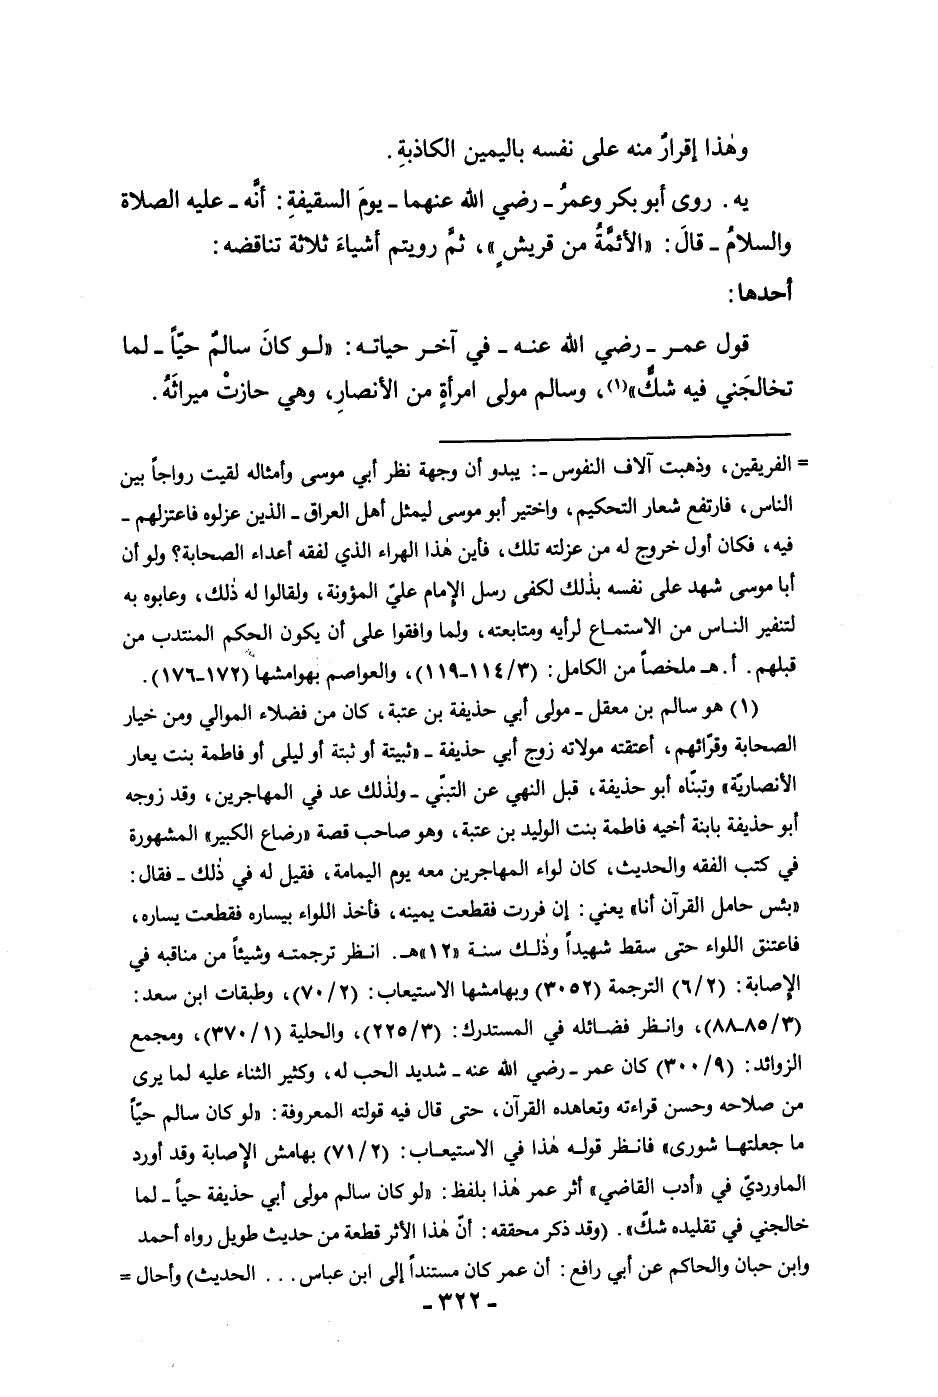 وهٰذا إقرارٌ منه على نفسه باليمين الكاذبةِ.
يه. روى أبو بكر وعمرُ ـ رضي الله عنهما ـ يومَ السقيفةِ: أنَّه ـ عليه الصلاة
والسلامُ ـ قالَ: «الأئمَّةُ من قريشٍ»، ثمَّ رويتم أشياءَ ثلاثة تناقضه:
أحدها:
قول عمر ـ رضي الله عنه ـ في آخر حياته: «لو كانَ سالمٌ حيّاً ـ لما
تخالجَني فيه شكٌّ»(١)، وسالم مولى امرأةٍ من الأنصارِ، وهي حازتْ ميراثَهُ.
= الفريقين، وذهبت آلاف النفوس ـ: يبدو أن وجهة نظر أبي موسى وأمثاله لقيت رواجاً بين
الناس، فارتفع شعار التحكيم، واختير أبو موسى ليمثل أهل العراق ـ الذين عزلوه فاعتزلهم ـ
فيه، فكان أول خروج له من عزلته تلك، فأين هٰذا الهراء الذي لفقه أعداء الصحابة؟ ولو أن
أبا موسى شهد على نفسه بذٰلك لكفى رسل الإمام عليّ المؤونة، ولقالوا له ذٰلك، وعابوه به
لتنفير الناس من الاستماع لرأيه ومتابعته، ولما وافقوا على أن يكون الحكم المنتدب من
قبلهم. أ. هـ ملخصاً من الكامل: (٣/١١٤-١١٩)، والعواصم بهوامشها (١٧٢-١٧٦).
(١) هو سالم بن معقل ـ مولى أبي حذيفة بن عتبة، كان من فضلاء الموالي ومن خيار
الصحابة وقرّائهم، أعتقته مولاته زوج أبي حذيفة ـ «ثبيتة أو ثبتة أو ليلى أو فاطمة بنت يعار
الأنصاريّة» وتبنّاه أبو حذيفة، قبل النهي عن التبنّي ـ ولذٰلك عد في المهاجرين، وقد زوجه
أبو حذيفة بابنة أخيه فاطمة بنت الوليد بن عتبة، وهو صاحب قصة «رضاع الكبير» المشهورة
في كتب الفقه والحديث، كان لواء المهاجرين معه يوم اليمامة، فقيل له في ذٰلك ـ فقال:
«بئس حامل القرآن أنا» يعني: إن فررت فقطعت يمينه، فأخذ اللواء بيساره فقطعت يساره،
فاعتنق اللواء حتى سقط شهيداً وذٰلك سنة «١٢»هـ. انظر ترجمته وشيئاً من مناقبه في
الإصابة: (٦/٢) الترجمة (٣٠٥٢) وبهامشها الاستيعاب: (٧٠/٢)، وطبقات ابن سعد:
(٨٥/٣-٨٨)، وانظر فضائله في المستدرك: (٢٢٥/٣)، والحلية (٣٧٠/١)، ومجمع
الزوائد: (٣٠٠/٩) كان عمر ـ رضي الله عنه ـ شديد الحب له، وكثير الثناء عليه لما يرى
من صلاحه وحسن قراءته وتعاهده القرآن، حتى قال فيه قولته المعروفة: «لو كان سالم حيّاً
ما جعلتها شورى» فانظر قوله هٰذا في الاستيعاب: (٧١/٢) بهامش الإصابة وقد أورد
الماورديّ في «أدب القاضي» أثر عمر هٰذا بلفظ: «لو كان سالم مولى أبي حذيفة حياً ـ لما
خالجني في تقليده شكّ». (وقد ذكر محققه: أنّ هٰذا الأثر قطعة من حديث طويل رواه أحمد
وابن حبان والحاكم عن أبي رافع: أن عمر كان مستنداً إلى ابن عباس... الحديث) وأحال =
- ٣٢٢ -